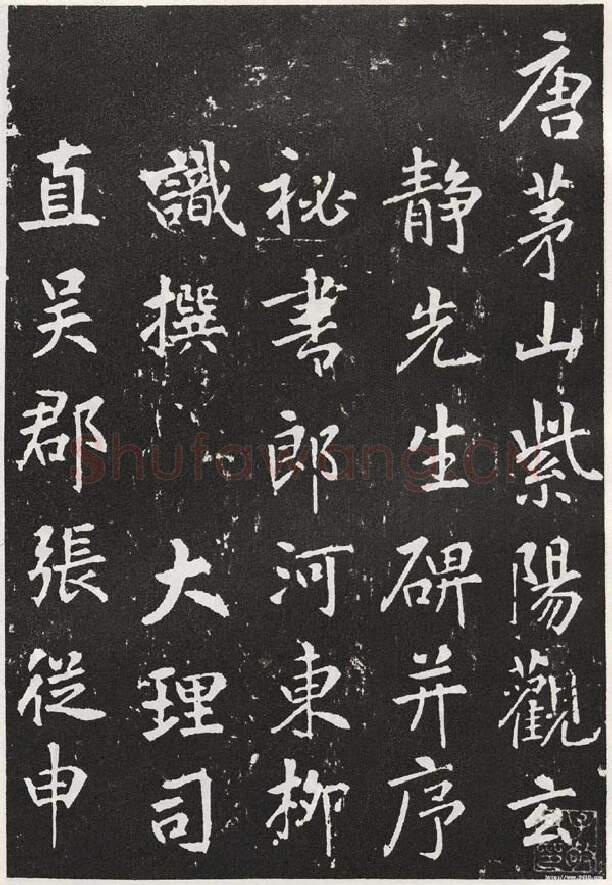 唐茅山紫陽觀玄
靜先生碑并序
祕書郎河東柳
識撰 大理司
直吳郡張從申
Shufawang.cn